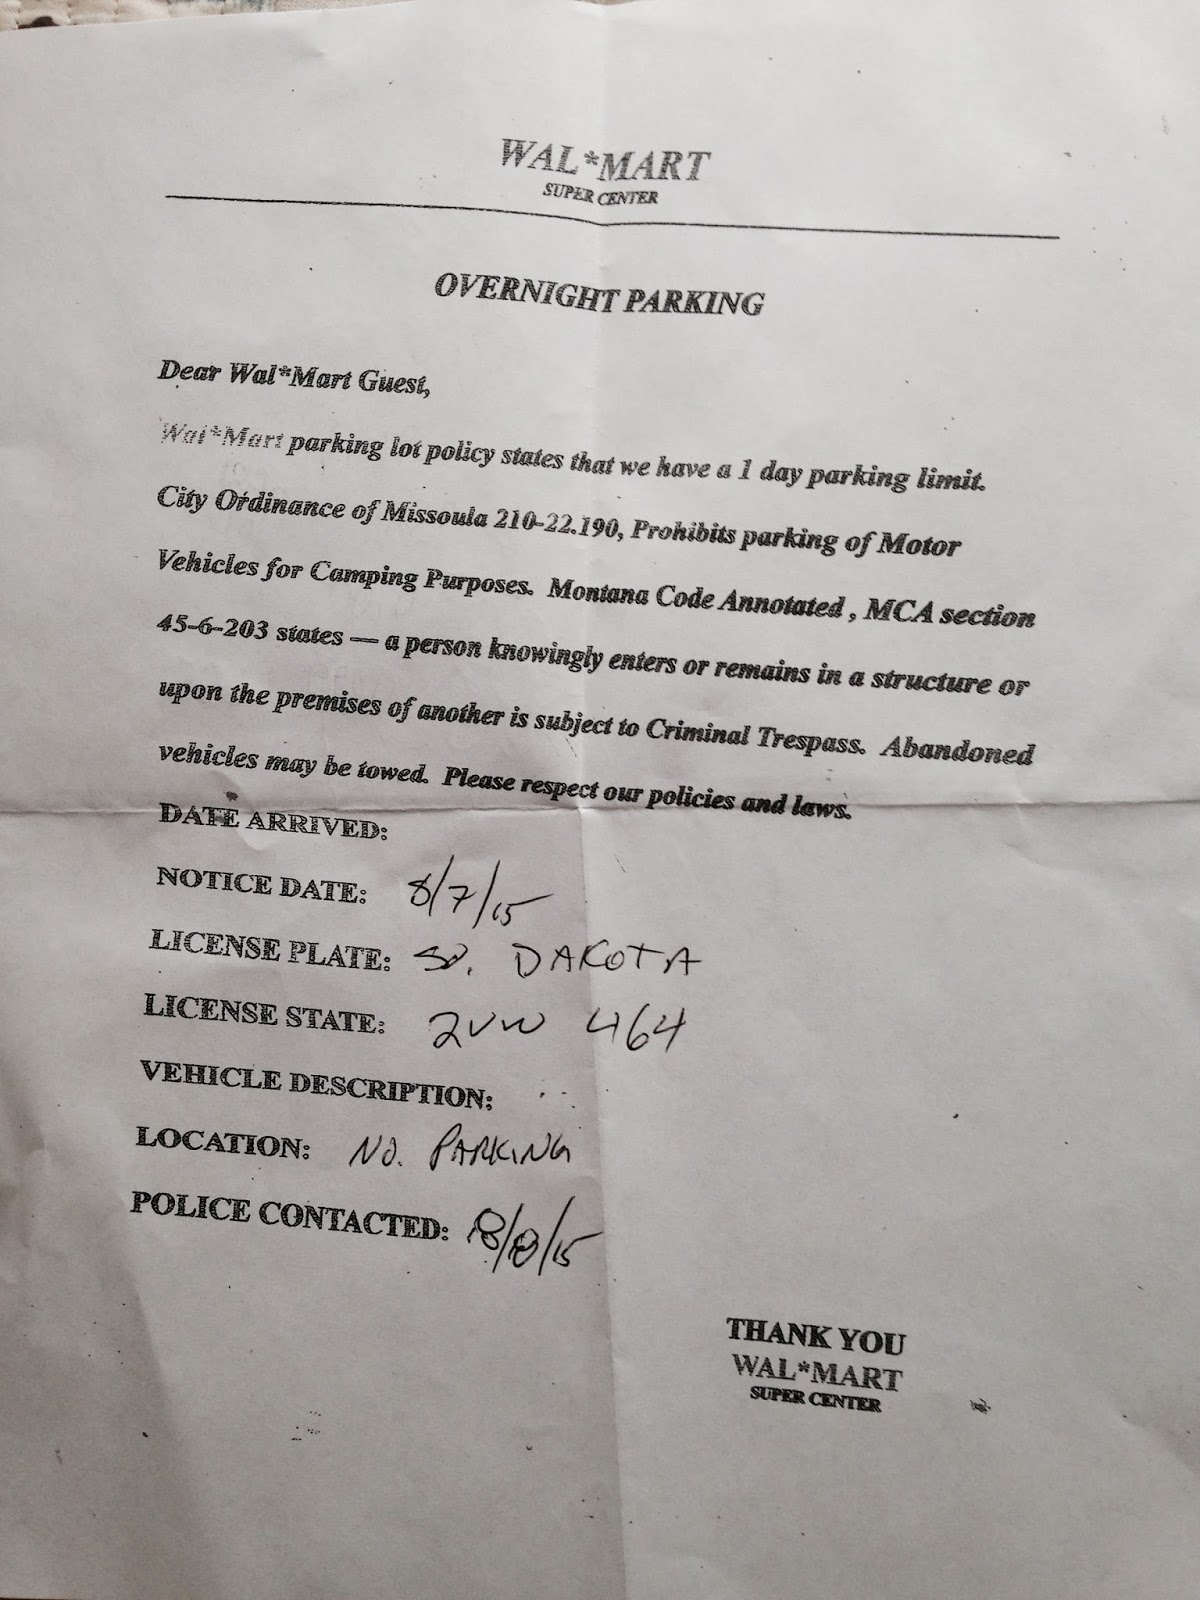 WAL*MART
SUPER CENTER
OVERNIGHT PARKING
Dear Wal*Mart Guest,
Wal*Mart parking lot policy states that we have a 1 day parking limit.
City Ordinance of Missoula 210-22.190, Prohibits parking of Motor
Vehicles for Camping Purposes. Montana Code Annotated , MCA section
45-6-203 states — a person knowingly enters or remains in a structure or
upon the premises of another is subject to Criminal Trespass. Abandoned
vehicles may be towed. Please respect our policies and laws.
DATE ARRIVED:
NOTICE DATE: 8/7/15
LICENSE PLATE: SO. DAKOTA
LICENSE STATE: 2VW 464
VEHICLE DESCRIPTION:
LOCATION: NO. PARKING
POLICE CONTACTED: 8/8/15
THANK YOU
WAL*MART
SUPER CENTER